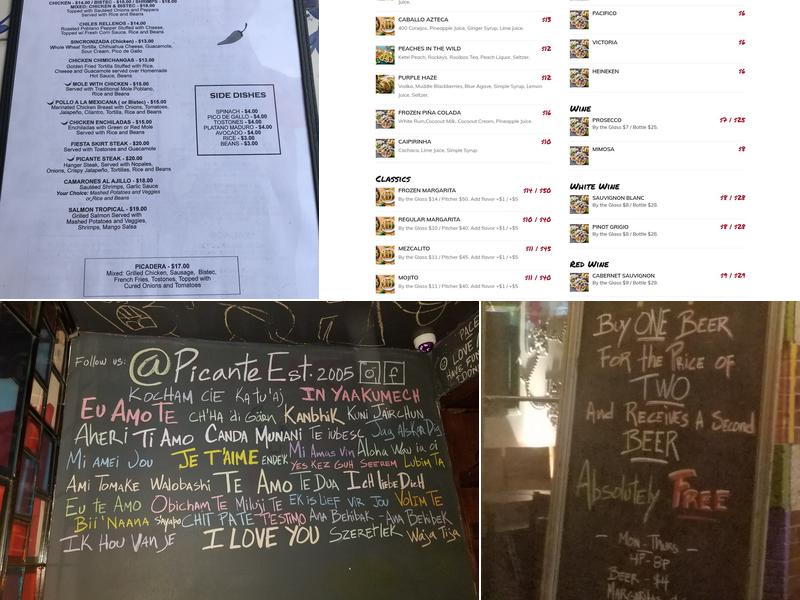 CHICKEN - $14.00 / BISTEC - $15.00 / SHRIMPS - $18.00
MIXED: CHICKEN & BISTEC - $19.00
Topped with Sauteed Onions and Peppers
Served with Rice and Beans
CHILES RELLENOS - $14.00
Roasted Poblano Pepper Stuffed with Cheese,
Topped w/ Fresh Corn Sauce, Rice and Beans
SINCRONIZADA (Chicken) - $13.00
Whole Wheat Tortilla, Chihuahua Cheese, Guacamole,
Sour Cream, Pico de Gallo
CHICKEN CHIMICHANGAS - $13.00
Golden Fried Tortilla Stuffed with Rice,
Cheese and Guacamole served over Homemade
Hot Sauce, Beans
MOLE WITH CHICKEN - $15.00
Served with Traditional Mole Poblano,
Rice and Beans
POLLO A LA MEXICANA ( or Bistec) - $15.00
Marinated Chicken Breast with Onions, Tomatoes,
Jalapeño, Cilantro, Tortillas, Rice and Beans
CHICKEN ENCHILADAS - $15.00
Enchiladas with Green or Red Mole
Served with Rice and Beans
FIESTA SKIRT STEAK - $20.00
Served with Tostones and Guacamole
PICANTE STEAK - $20.00
Hanger Steak, Served with Nopales,
Onions, Crispy Jalapeño, Tortillas, Rice and Beans
CAMARONES AL AJILLO - $18.00
Sautéed Shrimps, Garlic Sauce
Your Choice: Mashed Potatoes and Veggies
or Rice and Beans
SALMON TROPICAL - $19.00
Grilled Salmon Served with
Mashed Potatoes and Veggies,
Shrimps, Mango Salsa
SIDE DISHES
SPINACH - $4.00
PICO DE GALLO - $4.00
TOSTONES - $4.00
PLATANO MADURO - $4.00
AVOCADO - $4.00
RICE - $3.00
BEANS - $3.00
PICADERA - $17.00
Mixed: Grilled Chicken, Sausage, Bistec,
French Fries, Tostones, Topped with
Cured Onions and Tomatoes
Juice.
CABALLO AZTECA $13
400 Conejos, Pineapple Juice, Ginger Syrup, Lime Juice.
PEACHES IN THE WILD $12
Ketel Peach, Rockeys, Rooibos Tea, Peach Liquor, Seltzer.
PURPLE HAZE $12
Vodka, Muddle Blackberries, Blue Agave, Simple Syrup, Lemon
Juice, Seltzer.
FROZEN PIÑA COLADA $16
White Rum, Coconut Milk, Coconut Cream, Pineapple Juice.
CAIPIRINHA $10
Cachaca, Lime Juice, Simple Syrup.
CLASSICS
FROZEN MARGARITA $14 / $50
By the Glass $14 / Pitcher $50. Add flavor +$1 / +$5
REGULAR MARGARITA $10 / $40
By the Glass $10 / Pitcher $40. Add flavor +$1 / +$5
MEZCALITO $11 / $45
By the Glass $11 / Pitcher $45. Add flavor +$1 / +$5
MOJITO $11 / $40
By the Glass $11 / Pitcher $40. Add flavor +$1 / +$5
PACIFICO $6
VICTORIA $6
HEINEKEN $6
WINE
PROSECCO $7 / $25
By the Glass $7 / Bottle $25.
MIMOSA $8
WHITE WINE
SAUVIGNON BLANC $8 / $28
By the Glass $8 / Bottle $28.
PINOT GRIGIO $8 / $28
By the Glass $8 / Bottle $28.
RED WINE
CABERNET SAUVIGNON $9 / $29
By the Glass $9 / Bottle $29.
Follow us: @Picante Est. 2005
KOCHAM CIE Ka tu'aj IN YAAKUMECH
Eu AmoTe CH'HA di Gârn Kanbhik Kuni JAIRCHUN
Aheri Ti Amo Canda Munani Te iubesc Jag Alskar Dig
Mi Amei Jou JE T'AIME ENDE'K Mi Amas Vin Aloha Wau ia oi
YES KEZ GUH SEEREM LUBIM TA
Ami Tomake Walobashi TE AMO TE DUA Ich liebe Dich
Eu te Amo Obicham Te Miluji Te EK is LIEF VIR JOU VOLIM TE
Bii'NAANA s'ayabo CHIT PA TE T'ESTIMO Ana Behibak - Ana Behibek
IK HOU VAN JE I LOVE YOU SZERETLEK Waja Tija
PACE
LOVE
HAVE FUN
BUY ONE BEER
FOR the PRICE OF
TWO
And RECEIVES A Second
BEER
Absolutely FREE
- MON-THURS -
4P-8P
BEER - $4